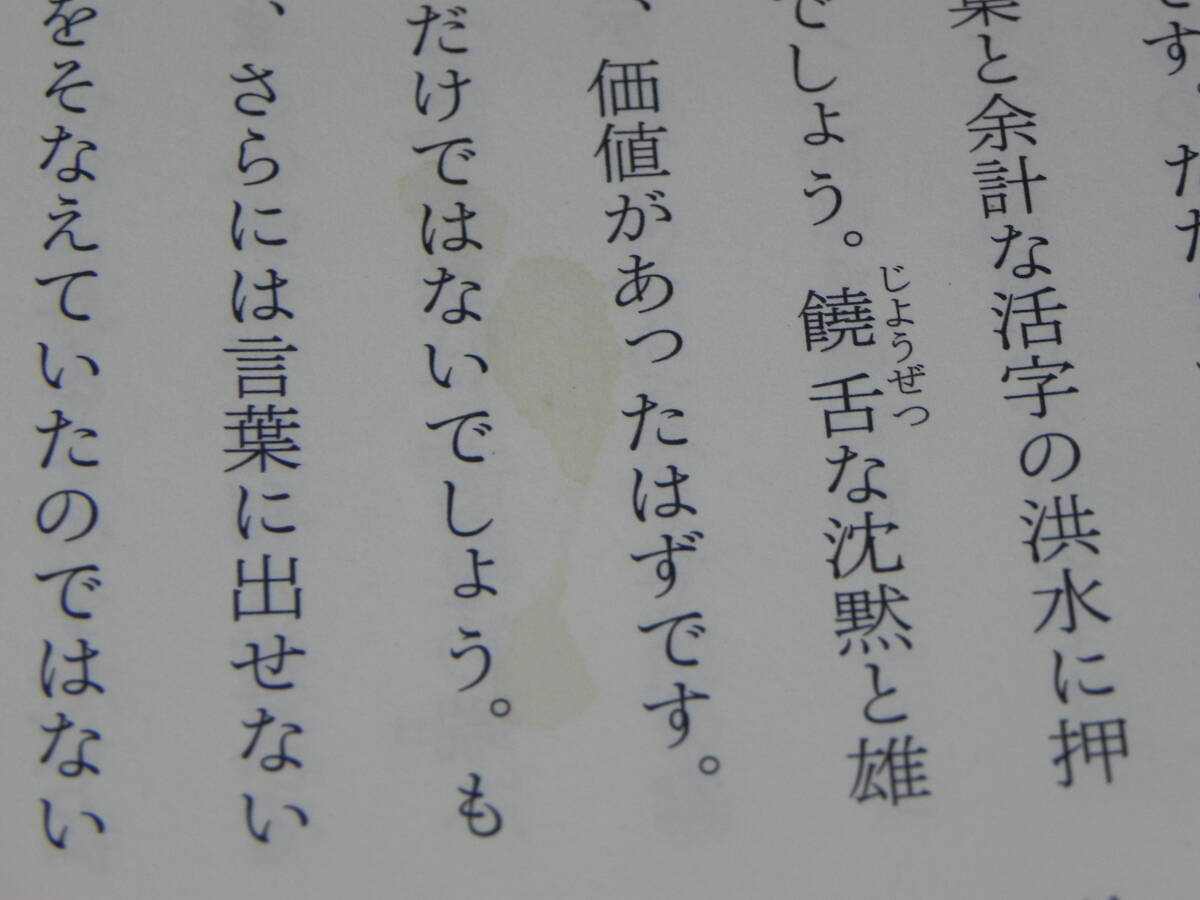 す。ただ
葉と余計な活字の洪水に押
でしょう。饒舌な沈黙と雄
じようぜつ
、価値があったはずです。
だけではないでしょう。も
、さらには言葉に出せない
をそなえていたのではない